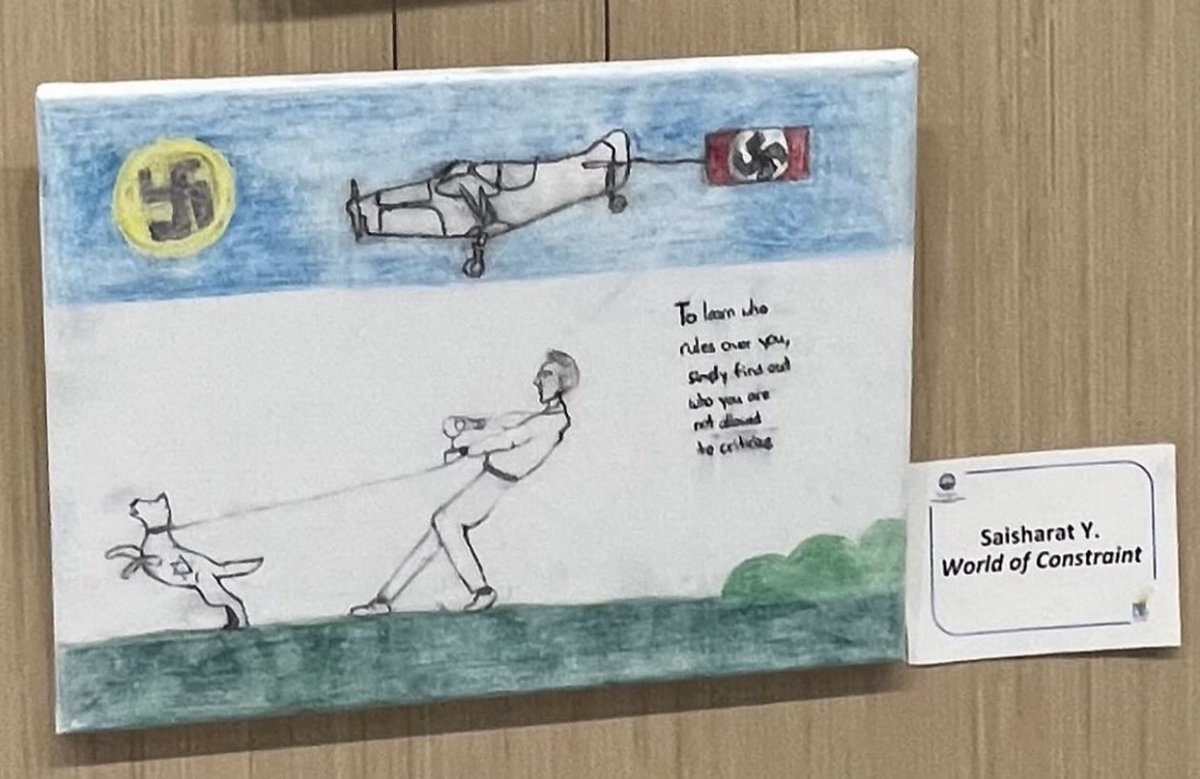 To learn who
rules over you,
simply find out
who you are
not allowed
to criticize
Saisharat Y.
World of Constraint